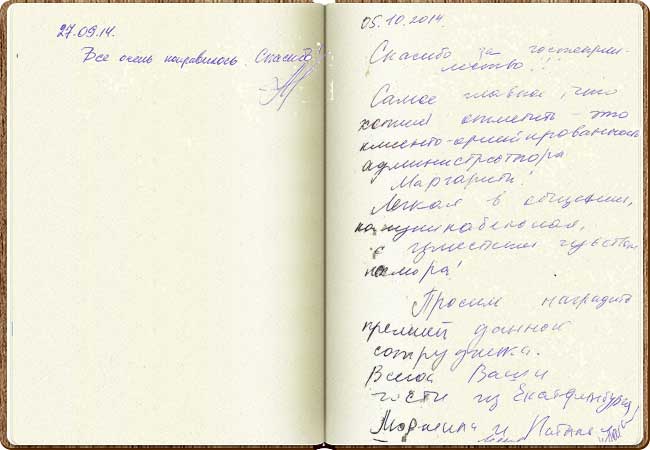 27.09.14.
Все очень понравилось. Спасибо!
05.10.2014.
Спасибо за гостеприи-
мство!!!
Самое главное, что
хотим отметить - это
клиенто-ориентированность
администратора
Маргариты!
Легкая в общении,
коммуникабельная,
с уместным чувством
юмора!
Просим наградить
премией данного
сотрудника.
Всегда Ваши
гости из Екатеринбурга,
Марина и Наталья